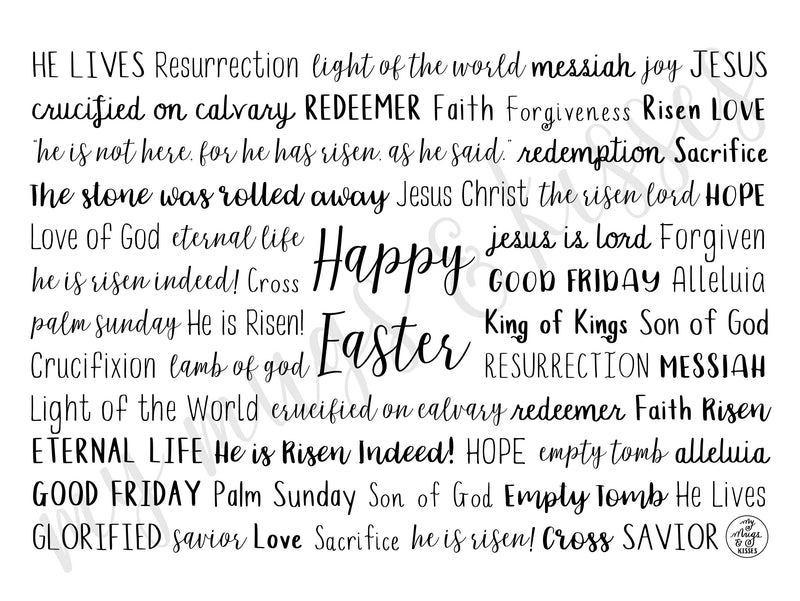 HE LIVES Resurrection light of the world messiah joy JESUS
crucified on calvary REDEEMER Faith Forgiveness Risen LOVE
"he is not here, for he has risen, as he said." redemption Sacrifice
The stone was rolled away Jesus Christ the risen lord HOPE
Love of God eternal life jesus is lord Forgiven
Happy
he is risen indeed! Cross GOOD FRIDAY Alleluia
palm sunday He is Risen! King of Kings Son of God
Easter
Crucifixion lamb of god RESURRECTION MESSIAH
Light of the World crucified on calvary redeemer Faith Risen
ETERNAL LIFE He is Risen Indeed! HOPE empty tomb alleluia
GOOD FRIDAY Palm Sunday Son of God Empty Tomb He Lives
GLORIFIED savior Love Sacrifice he is risen! Cross SAVIOR
my mugs & kisses
My
Mugs
&
KISSES